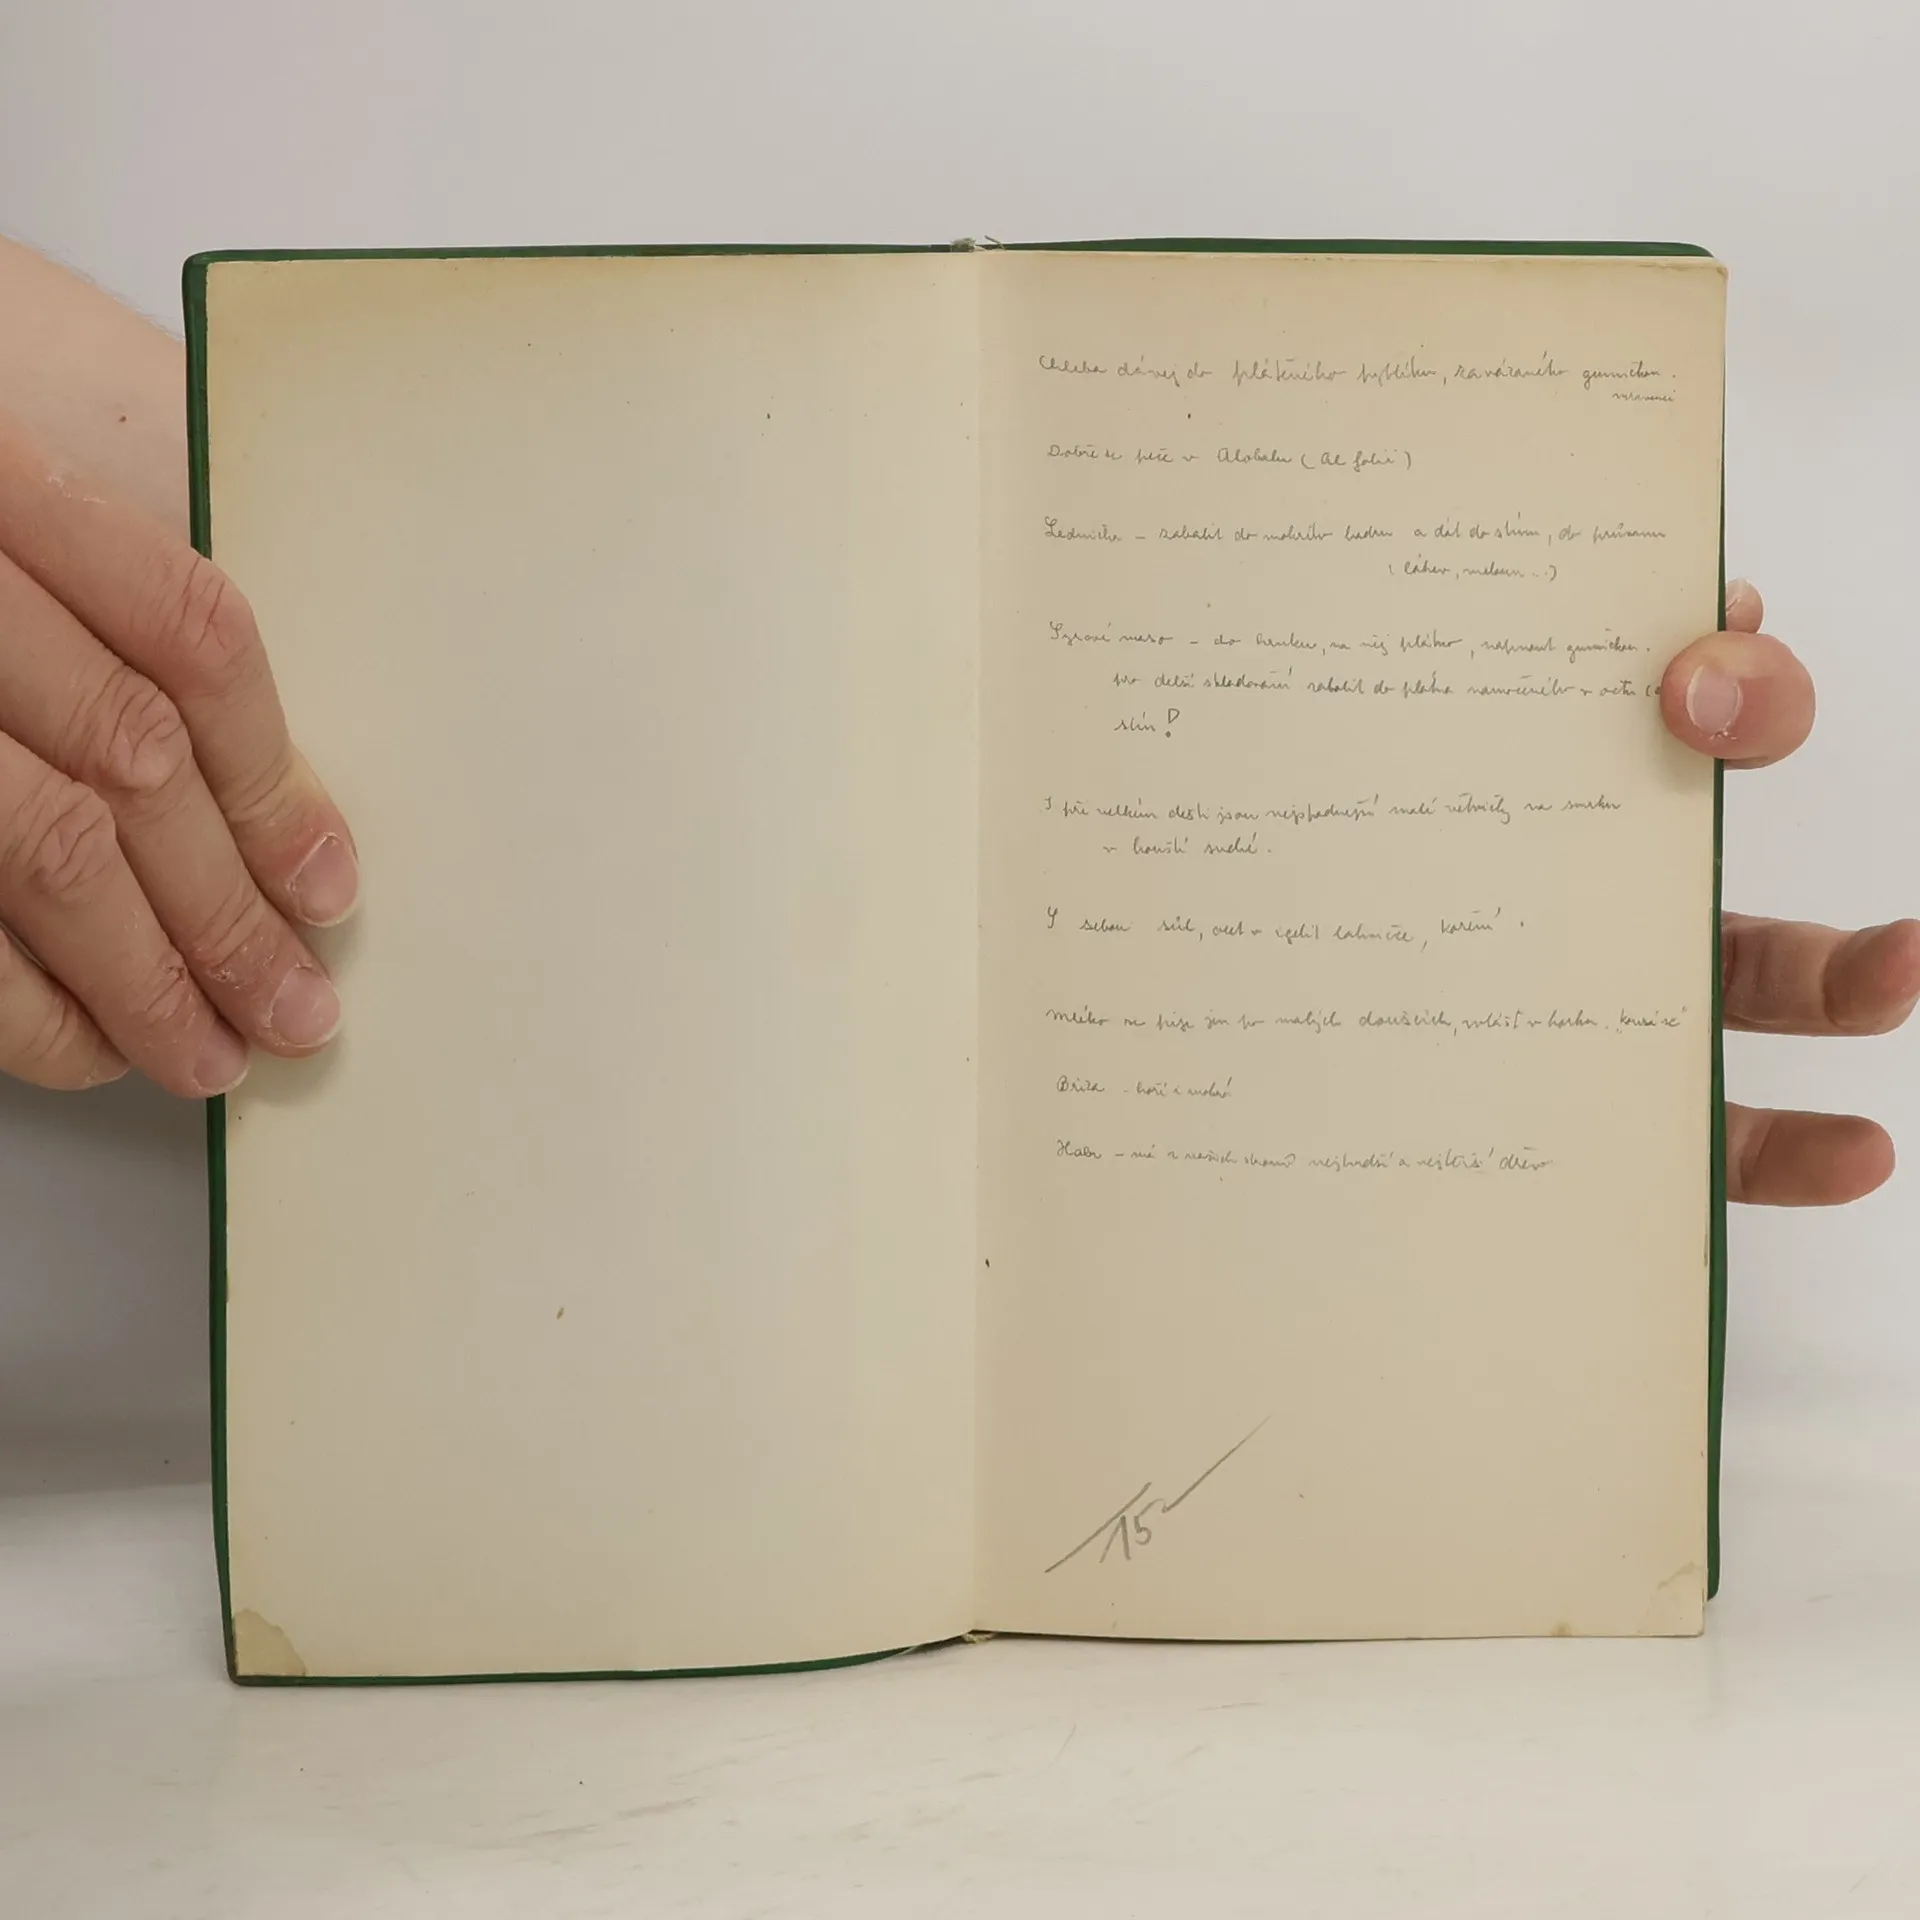 Chleba dávej do plátěného pytlíku, zavázaného gumičkou.
mravenci
Dobře se peče v Alobalu (Al folii)
Lednička – zabalit do mokrého hadru a dát do stínu, do průvanu
(láhev, meloun...)
Syrové maso – do hrnku, na něj plátno, napnout gumičkou.
pro delší skladování zabalit do plátna namočeného v octu (a
stín!
I při velkém dešti jsou nejspodnější malé větvičky na smrku
v houští suché.
S sebou sůl, ocet v igelit lahvičce, koření.
Mléko se pije jen po malých doušcích, zvlášť v horku. "kouše se"
Bříza – hoří i mokrá
Habr – má z našich stromů nejtvrdší a nejtěžší dřevo
15